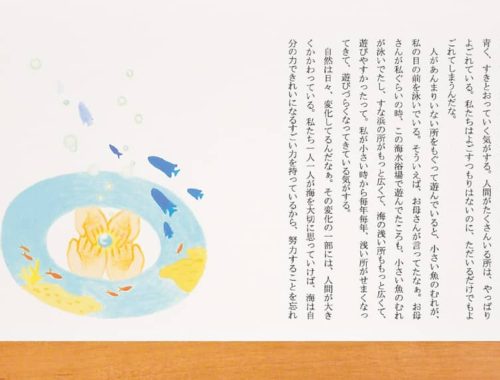 青く、すきとおっていく気がする。人間がたくさんいる所は、やっぱり
よごれている。私たちはよごすつもりはないのに、ただいるだけでもよ
ごれてしまうんだな。
人があんまりいない所をもぐって遊んでいると、小さい魚のむれが、
私の目の前を泳いでいる。そういえば、お母さんが言ってたなぁ。お母
さんが私ぐらいの時、この海水浴場で遊んでたころも、小さい魚のむれ
が泳いでたし、すな浜の所がもっと広くて、海の浅い所ももっと広くて、
遊びやすかったって。私が小さい時から毎年毎年、浅い所がせまくなっ
てきて、遊びづらくなってきている気がする。
自然は日々、変化してるんだなぁ。その変化の一部には、人間が大き
くかかわっている。私たち一人一人が海を大切に思っていけば、海は自
分の力できれいになるすごい力を持っているから、努力することを忘れ